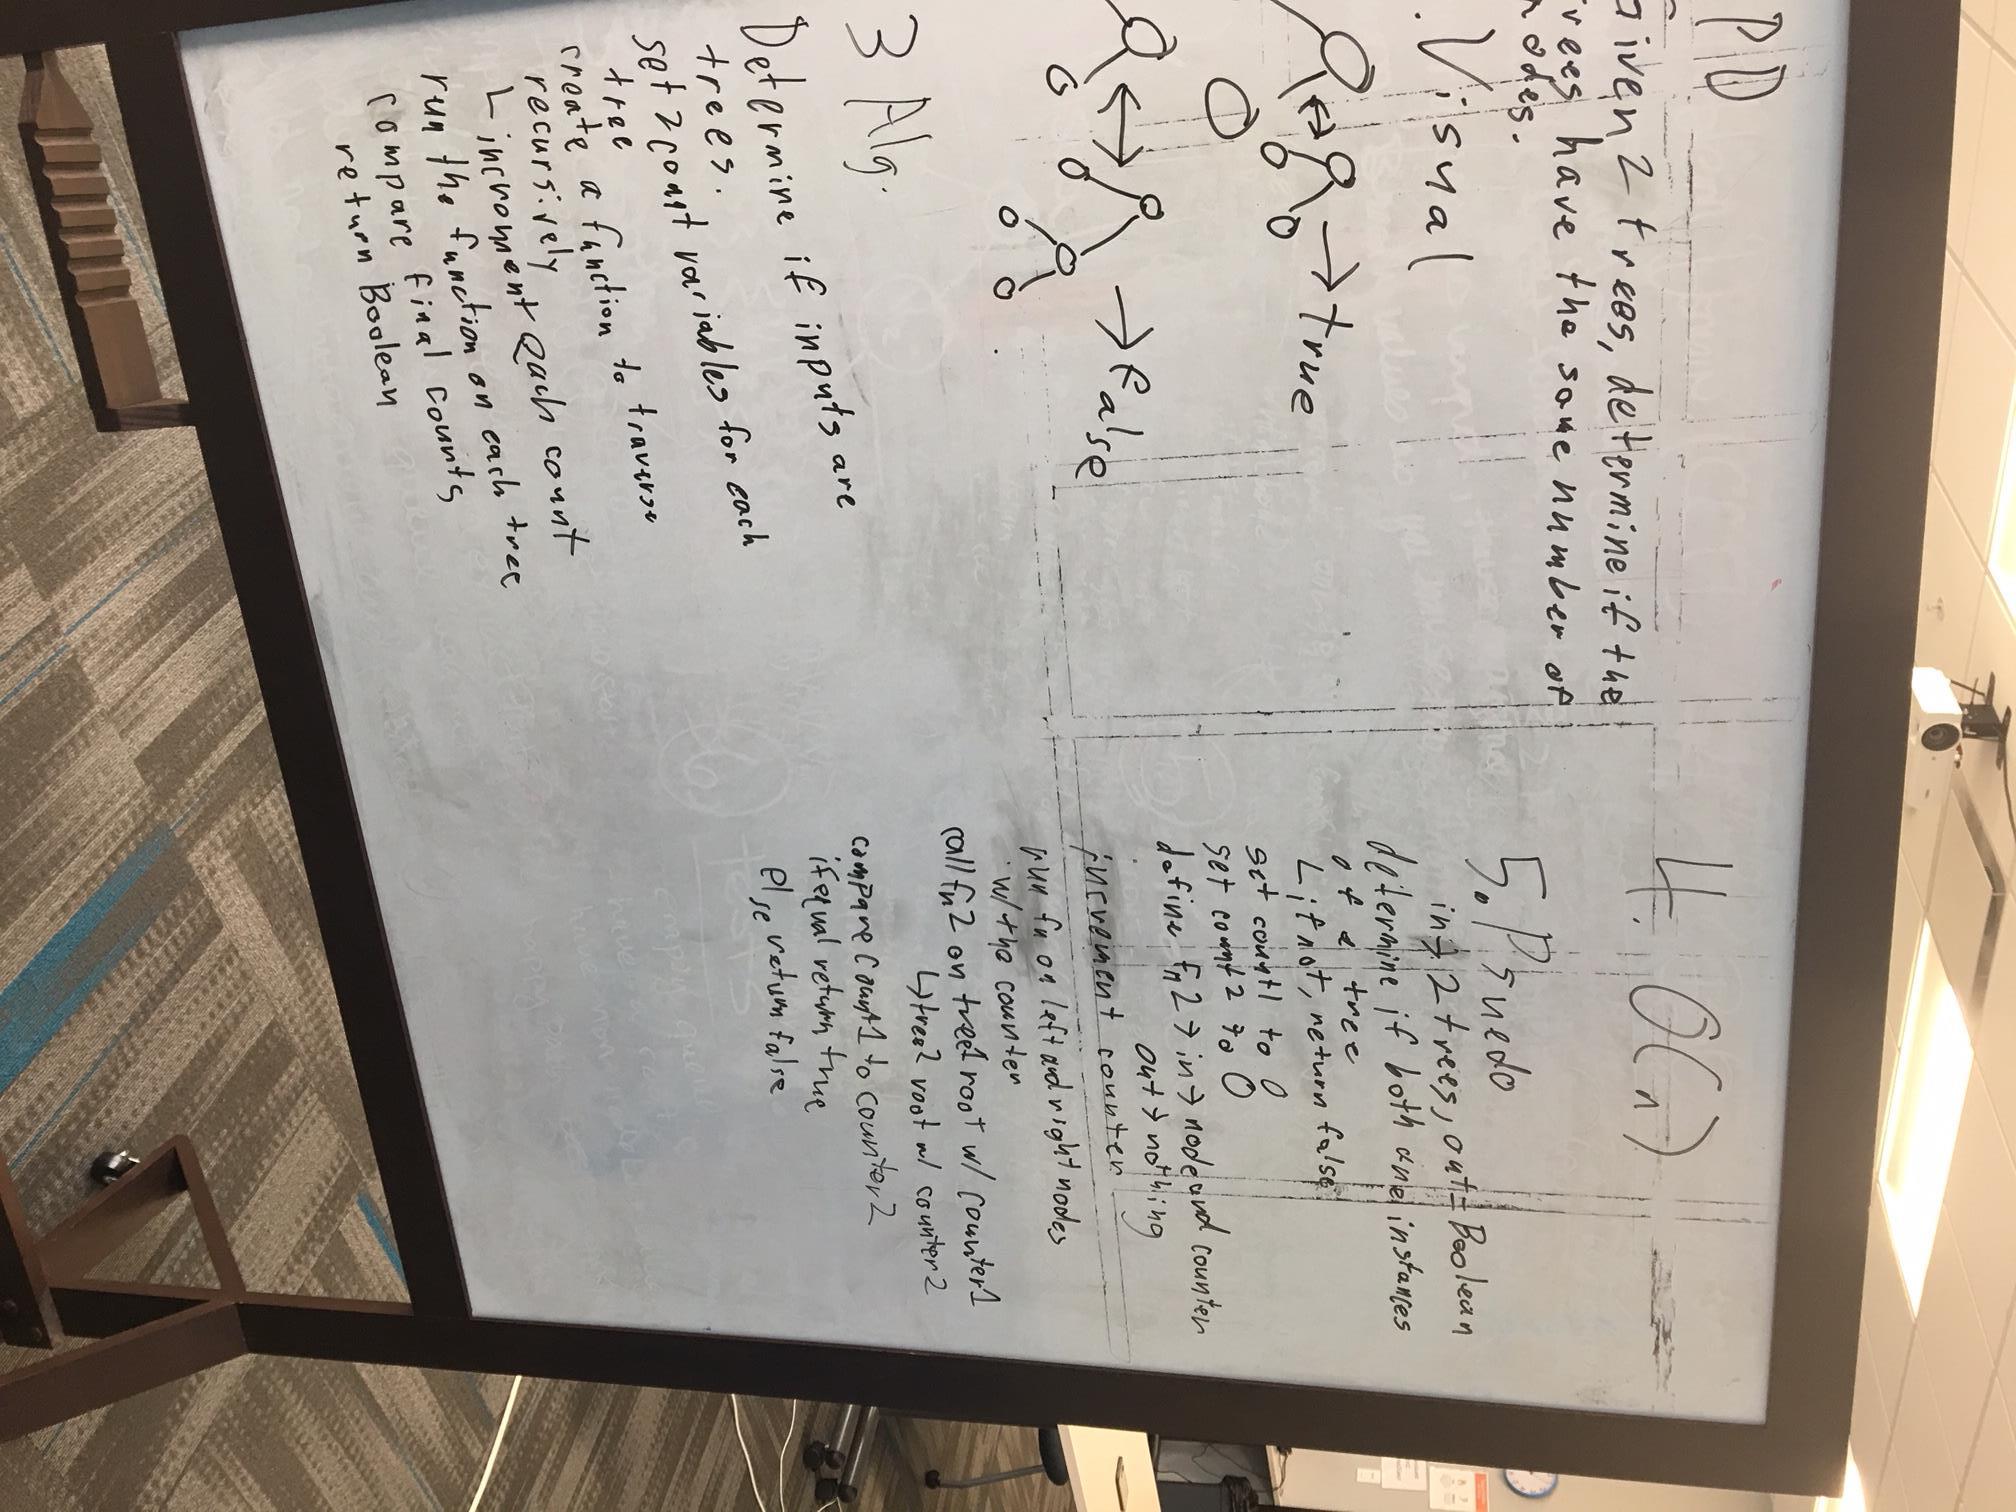 PD
Given 2 trees, determine if the
trees have the same number of
nodes.
Visual
→ true
→ false
3 Alg.
Determine if inputs are
trees.
set 2 count variables for each
tree
create a function to traverse
recursively
L increment each count
run the function on each tree
compare final counts
return Boolean
4. O(n)
5. Psuedo
in → 2 trees, out = Boolean
determine if both are instances
of a tree
L if not, return false
set count1 to 0
set count2 to 0
define fn2 → in → node and counter
out → nothing
increment counter
run fn on left and right nodes
w/ the counter
call fn2 on tree1 root w/ counter1
↳ tree2 root w/ counter2
compare count1 to counter2
if equal return true
else return false